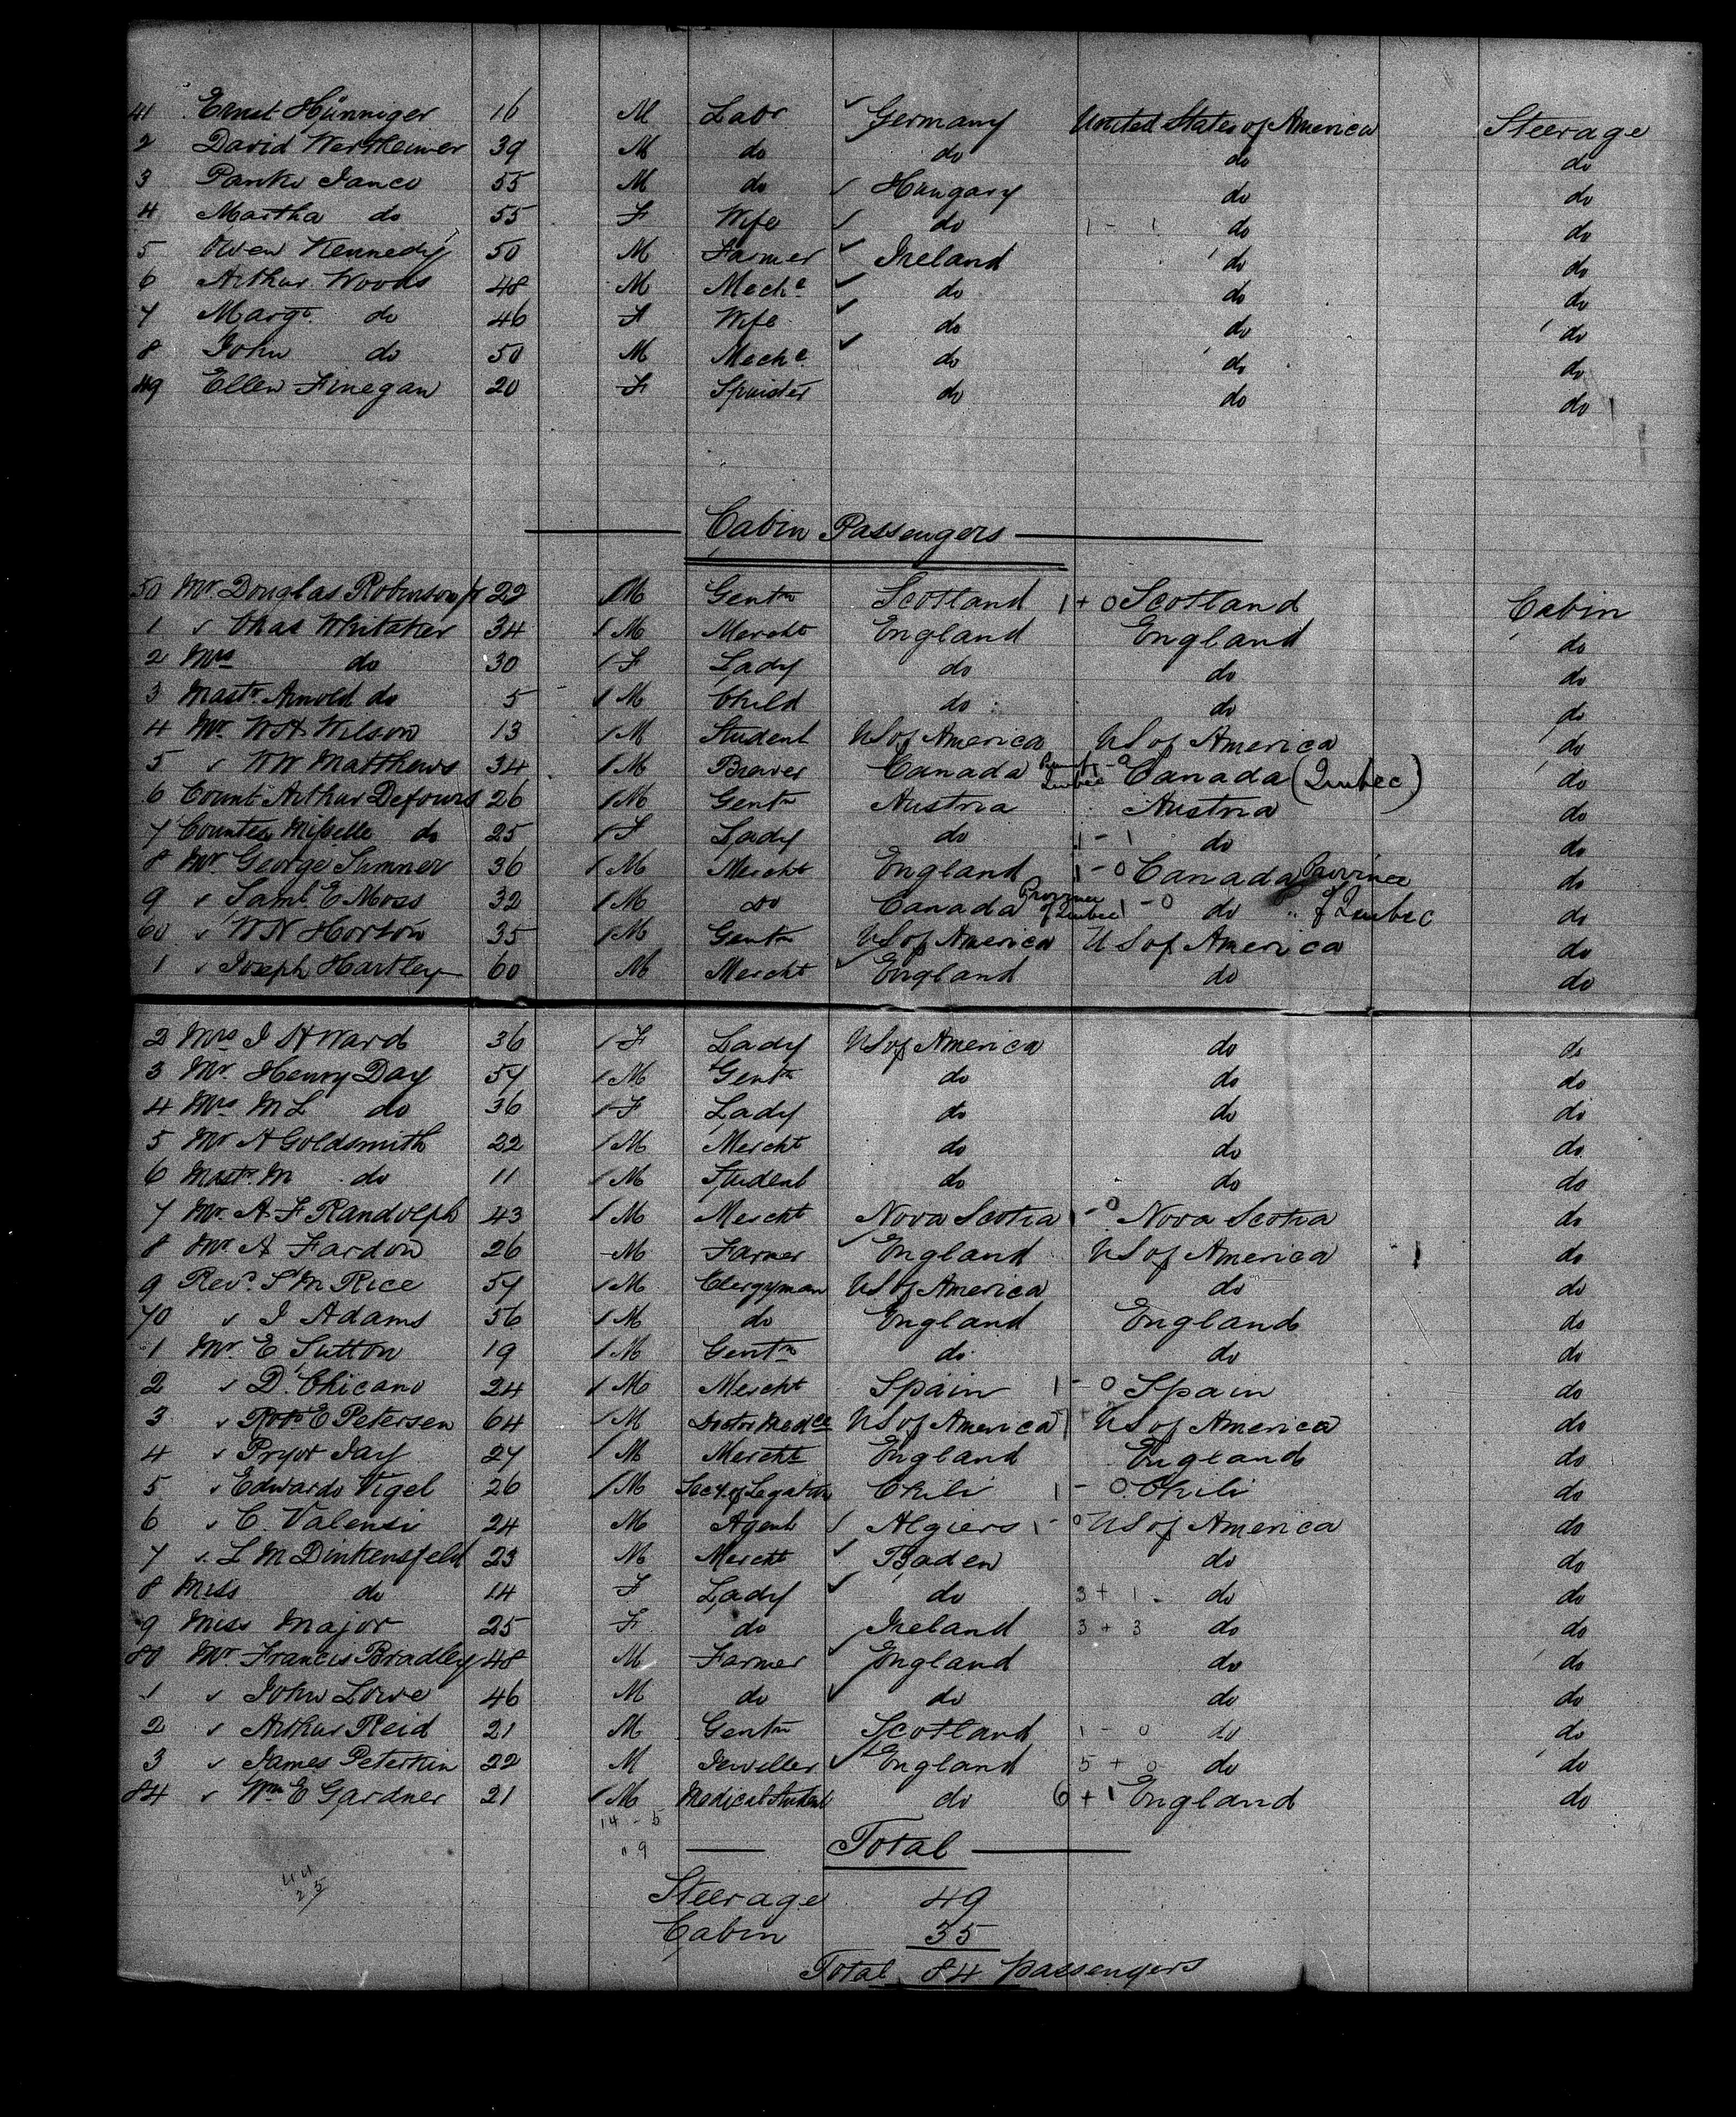 41 Ernst Hünniger 16 M Labr Germany United States of America Steerage
2 David Wertheimer 39 M do do do do
3 Panko Janco 55 M do Hungary do do
4 Martha do 55 F Wife do 1 - 1 do do
5 Owen Kennedy 50 M Farmer Ireland do do
6 Arthur Woods 48 M Meche do do do
7 Margt do 46 F Wife do do do
8 John do 50 M Meche do do do
49 Ellen Finegan 20 F Spinster do do do
Cabin Passengers
50 Mr. Douglas Robinson Jr 22 M Gentn Scotland 1 + 0 Scotland Cabin
1 " Chas Whitaker 34 M Mercht England England do
2 Mrs do 30 F Lady do do do
3 Mastr. Arnold do 5 M Child do do do
4 Mr. W H Wilson 13 M Student US of America US of America do
5 " WW Matthews 34 M Brewer Canada Quebec - 0 Canada (Quebec) do
6 Count Arthur Defours 26 M Gentn Austria Austria do
7 Countess do 25 F Lady do 1 - 1 do do
8 Mr. George Sumner 36 M Mercht England 1 - 0 Canada Province do
9 " Saml. E Moss 32 M do Canada Province of Quebec 1 - 0 do " of Quebec do
60 " W N Horton 35 M Gentn US of America US of America do
1 " Joseph Hartley 60 M Mercht England do do
2 Mrs J H Ward 36 F Lady US of America do do
3 Mr. Henry Day 57 M Gentn do do do
4 Mrs M L do 36 F Lady do do do
5 Mr A Goldsmith 22 M Mercht do do do
6 Mastr. M do 11 M Student do do do
7 Mr. A F Randolph 43 M Mercht Nova Scotia 1 - 0 Nova Scotia do
8 Mr A Fardon 26 M Farmer England US of America do
9 Revd. S M Rice 57 M Clergyman US of America do do
70 " J Adams 56 M do England England do
1 Mr. E Sutton 19 M Gentn do do do
2 " D. Chicano 24 M Mercht Spain 1 - 0 Spain do
3 " Robt E Petersen 64 M Doctor Medce US of America US of America do
4 " Pryor Jay 27 M Mercht England England do
5 " Edwardo Vigel 26 M Secy. of Legation Chili 1 - 0 Chili do
6 " C. Valensi 24 M Agent Algiers 1 - 0 US of America do
7 " L M Dinkensfeld 23 M Mercht Baden do do
8 Miss do 14 F Lady do 3 + 1 do do
9 Miss Major 25 F do Ireland 3 + 3 do do
80 Mr. Francis Bradley 48 M Farmer England do do
1 " John Lowe 46 M do do do do
2 " Arthur Reid 21 M Gentn Scotland 1 - 0 do do
3 " James Peterkin 22 M Jeweller England 5 + 0 do do
84 " Wm E Gardner 21 M Medical Student do 6 + 1 England do
14 - 5
9
Total
44
25
Steerage 49
Cabin 35
Total 84 passengers